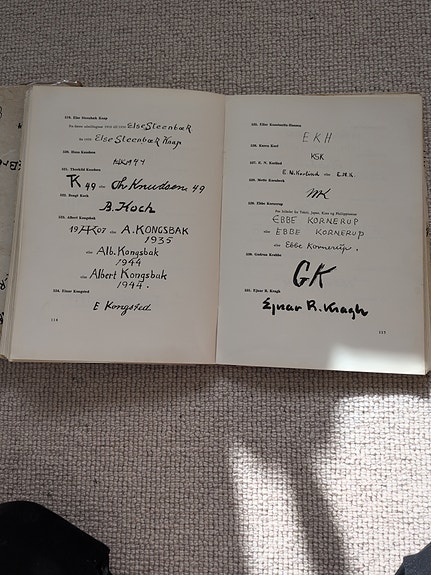 Else Steenbæk Knap
ELSE STEENBÆK
Else Steenbæk Knap
Hans Knudsen
HK1947
Thorkild Knudsen
TK 49 eller Th Knudsen 49
Bengt Koch
B. Koch
Albert Kongsbak
19 AK 07 eller A. KONGSBAK
1935
eller Alb. Kongsbak
1944
eller Albert Kongsbak
1944.
Einar Kongsted
E Kongsted
116
EKH
Karen Korf
KSK
E. N. Korslund eller E.N.K.
MK
Ebbe Kornerup
EBBE KORNERUP
eller EBBE KORNERUP
eller Ebbe Kornerup.
Gudrun Krabbe
GK
Ejnar R. Kragh
Ejnar R. Kragh
117